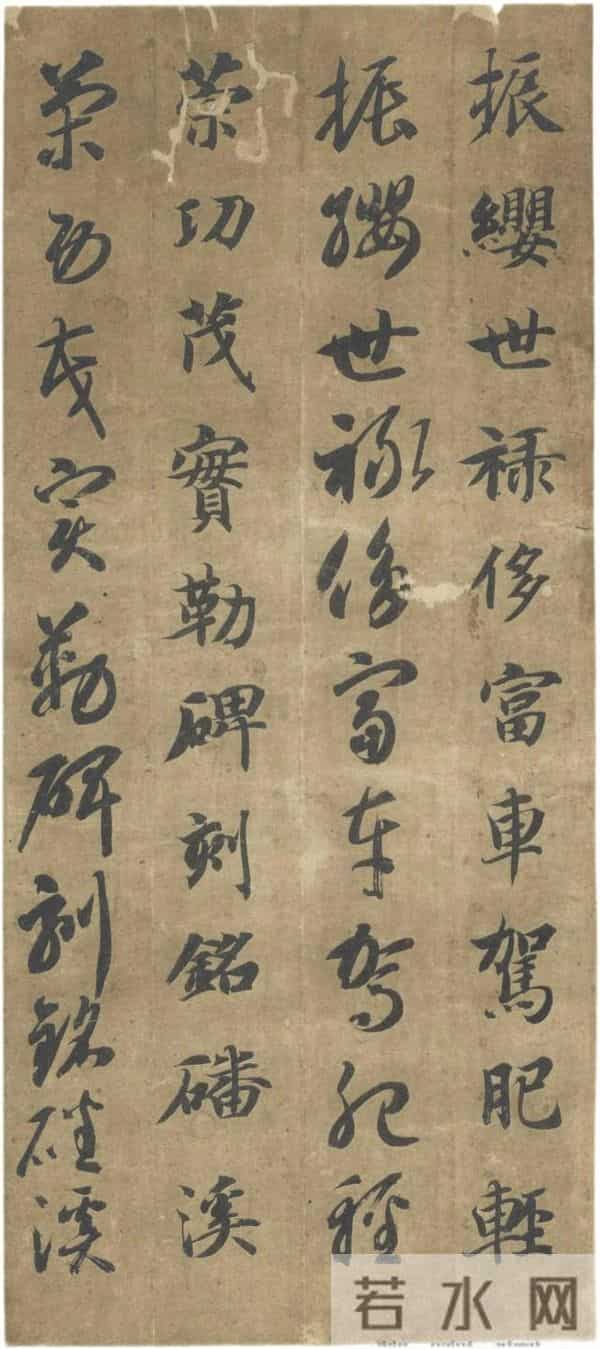 振纓世祿侈富車駕肥輕
振纓世祿侈富車駕肥輕
策功茂實勒碑刻銘磻溪
策功茂實勒碑刻銘磻溪
若水网